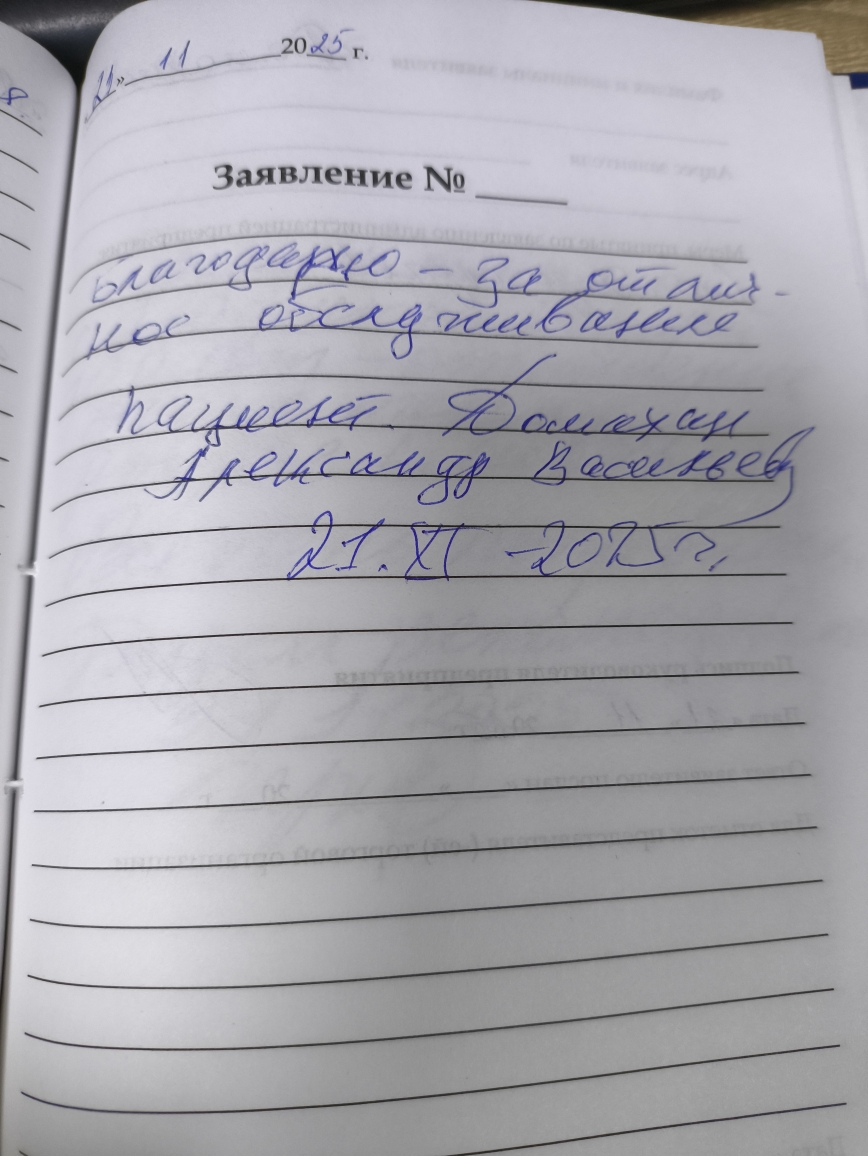 21» 11 2025 г.
Заявление № ____
Благодарю – за отлич-
ное обслуживание
пациент. Домахан
Александр Васильев
21. XI – 2025 г.